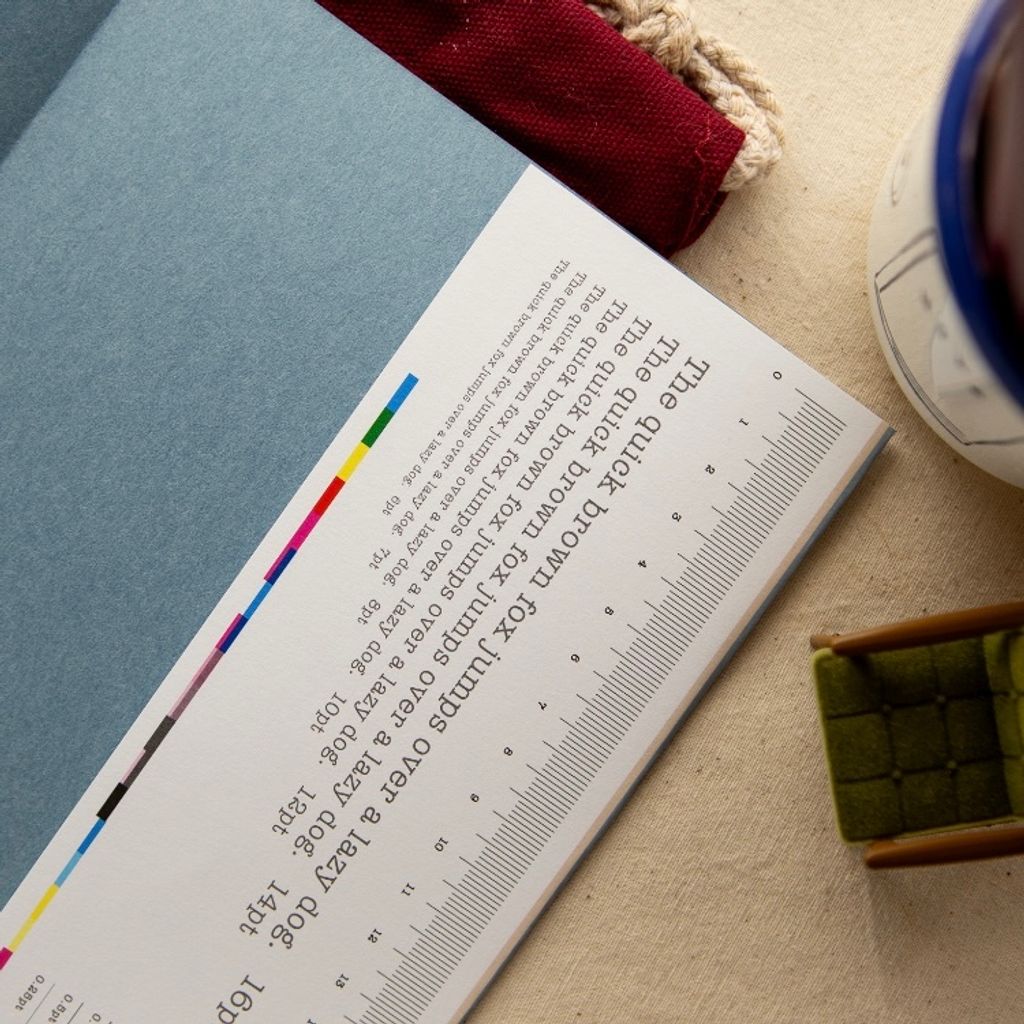 0 1 2 3 4 5 6 7 8 9 10 11 12 13
The quick brown fox jumps over a lazy dog. 16p
The quick brown fox jumps over a lazy dog. 14pt
The quick brown fox jumps over a lazy dog. 12pt
The quick brown fox jumps over a lazy dog. 10pt
The quick brown fox jumps over a lazy dog. 8pt
The quick brown fox jumps over a lazy dog. 7pt
The quick brown fox jumps over a lazy dog. 6pt
0.5pt
0.25pt